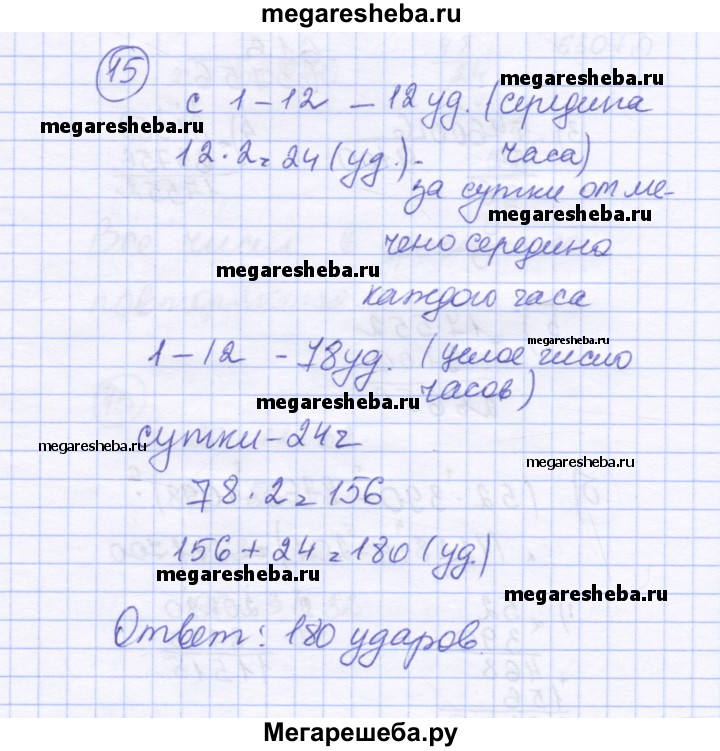 megaresheba.ru
15
с 1 - 12 - 12 уд. (середина
megaresheba.ru
megaresheba.ru
12 · 2 = 24 (уд.) - часа)
за сутки отме-
megaresheba.ru
чено середина
megaresheba.ru
каждого часа
1 - 12 - 78 уд. (целое число
megaresheba.ru
часов)
megaresheba.ru
сутки - 24 ч
megaresheba.ru
megaresheba.ru
78 · 2 = 156
156 + 24 = 180 (уд.)
megaresheba.ru
megaresheba.ru
Ответ: 180 ударов.
Мегарешеба.ру